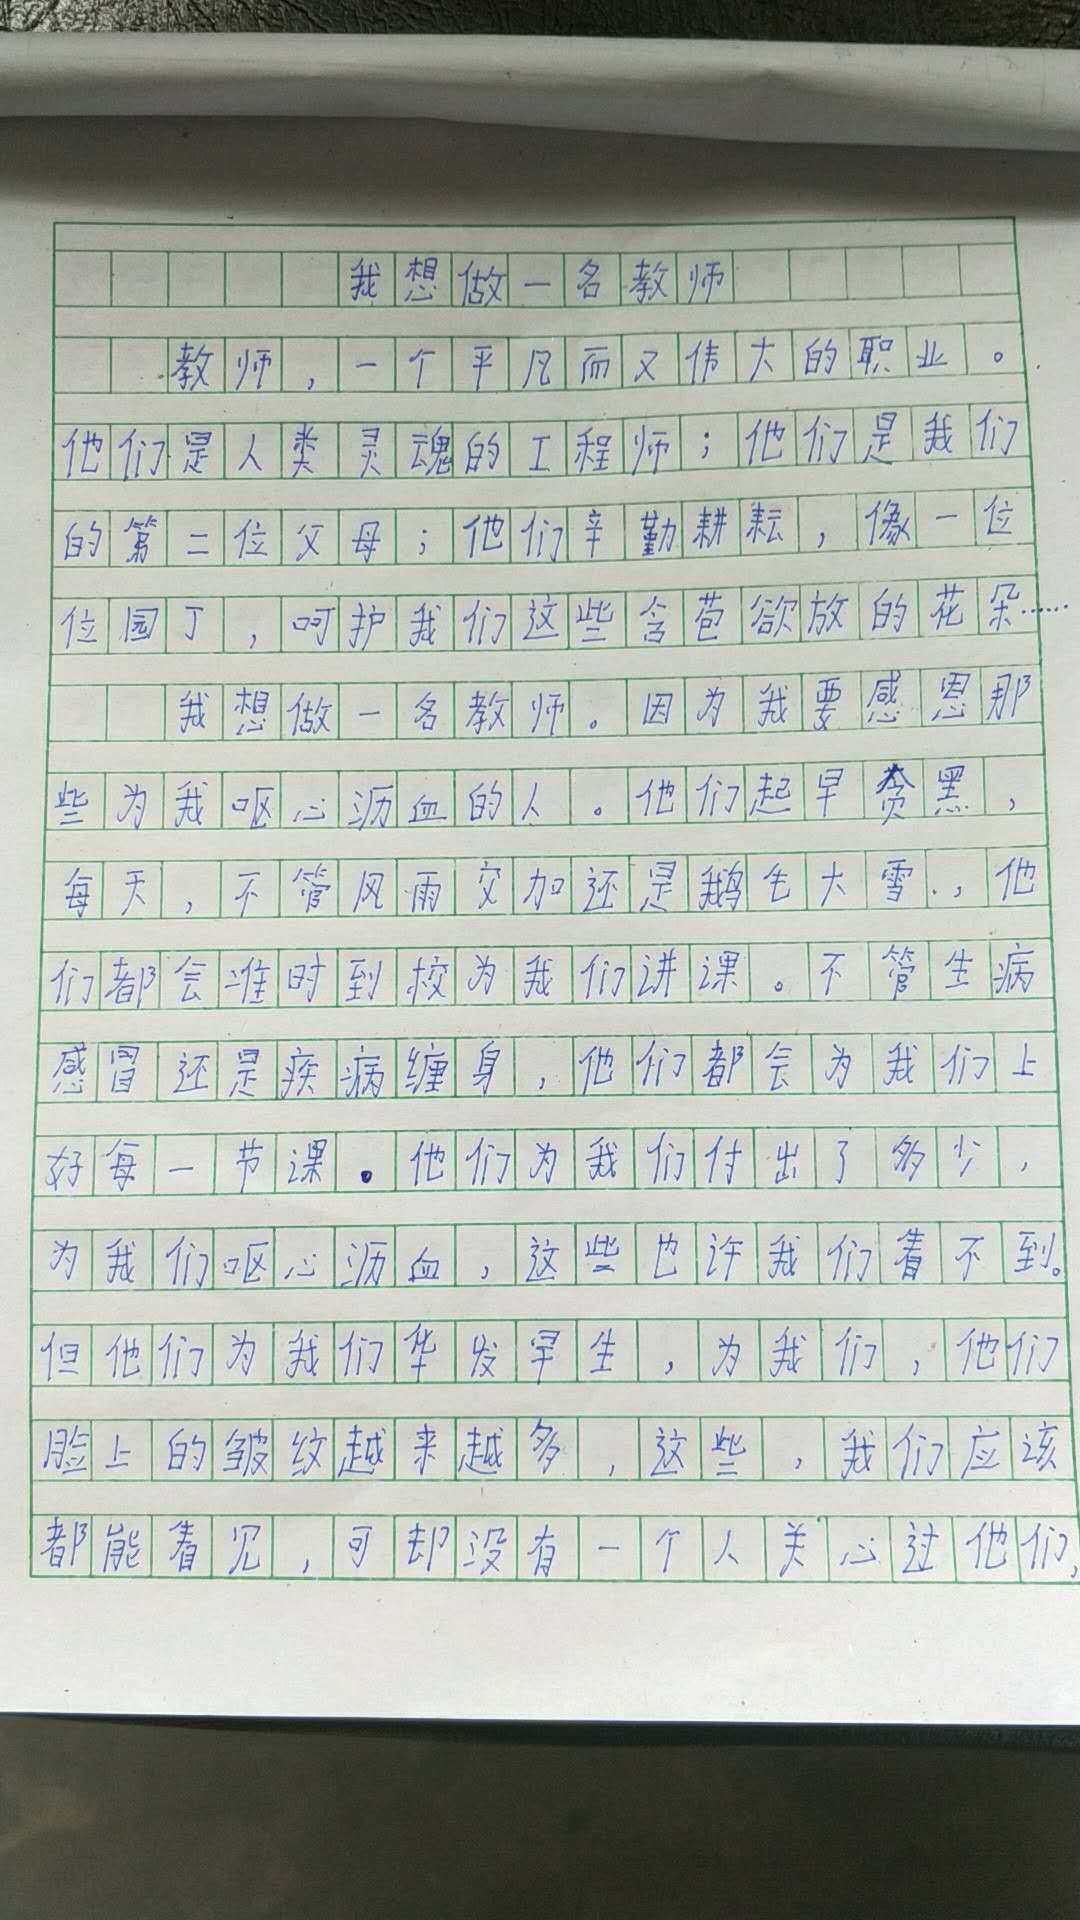 我想做一名教师
教师，一个平凡而又伟大的职业。
他们是人类灵魂的工程师；他们是我们
的第二位父母；他们辛勤耕耘，像一位
位园丁，呵护我们这些含苞欲放的花朵……
我想做一名教师。因为我要感恩那
些为我呕心沥血的人。他们起早贪黑，
每天，不管风雨交加还是鹅毛大雪，他
们都会准时到校为我们讲课。不管生病
感冒还是疾病缠身，他们都会为我们上
好每一节课。他们为我们付出了多少，
为我们呕心沥血，这些也许我们看不到。
但他们为我们华发早生，为我们，他们
脸上的皱纹越来越多，这些，我们应该
都能看见，可却没有一个人关心过他们，